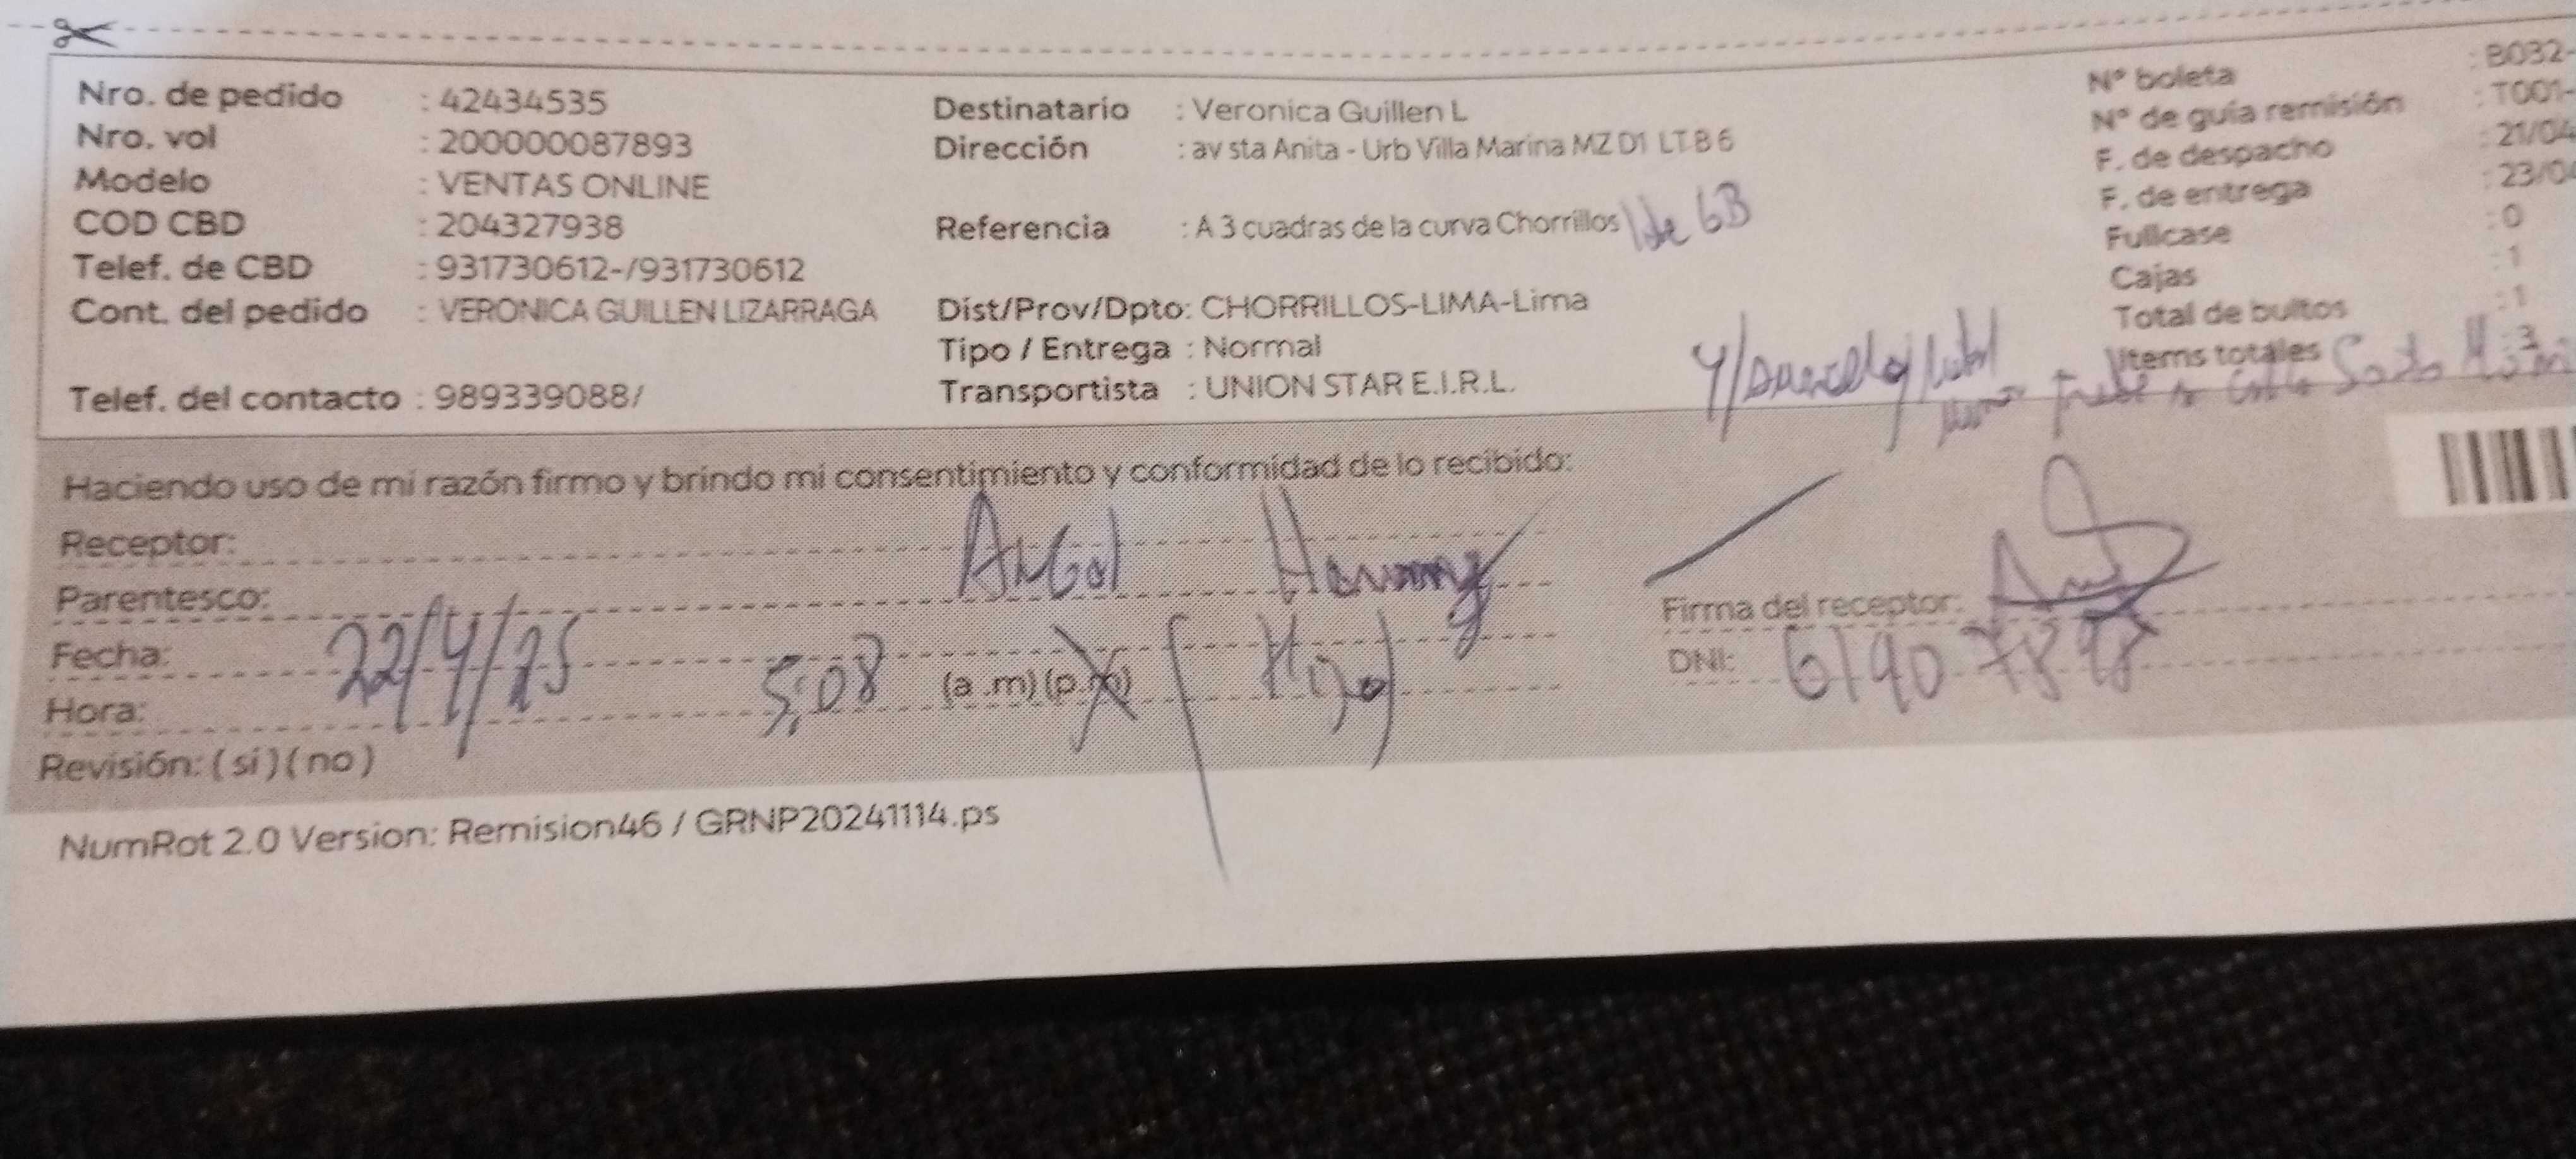 Nro. de pedido : 42434535
Nro. vol : 200000087893
Modelo : VENTAS ONLINE
COD CBD : 204327938
Telef. de CBD : 931730612-/931730612
Cont. del pedido : VERONICA GUILLEN LIZARRAGA
Telef. del contacto : 989339088/
Destinatario : Veronica Guillen L
Dirección : av sta Anita - Urb Villa Marina MZ D1 LT B 6
Referencia : A 3 cuadras de la curva Chorrillos 6B
Dist/Prov/Dpto: CHORRILLOS-LIMA-Lima
Tipo / Entrega : Normal
Transportista : UNION STAR E.I.R.L.
N° boleta : B032-
N° de guía remisión : T001-
F. de despacho : 21/04
F. de entrega : 23/04
Fullcase : 0
Cajas : 1
Total de bultos : 1
Items totales : 3
Haciendo uso de mi razón firmo y brindo mi consentimiento y conformidad de lo recibido:
Receptor:
Parentesco:
Fecha: 22/4/25
Hora: 5:08 (a .m) (p.m)
Firma del receptor:
DNI:
Revisión: ( si ) ( no )
NumRot 2.0 Version: Remision46 / GRNP20241114.ps